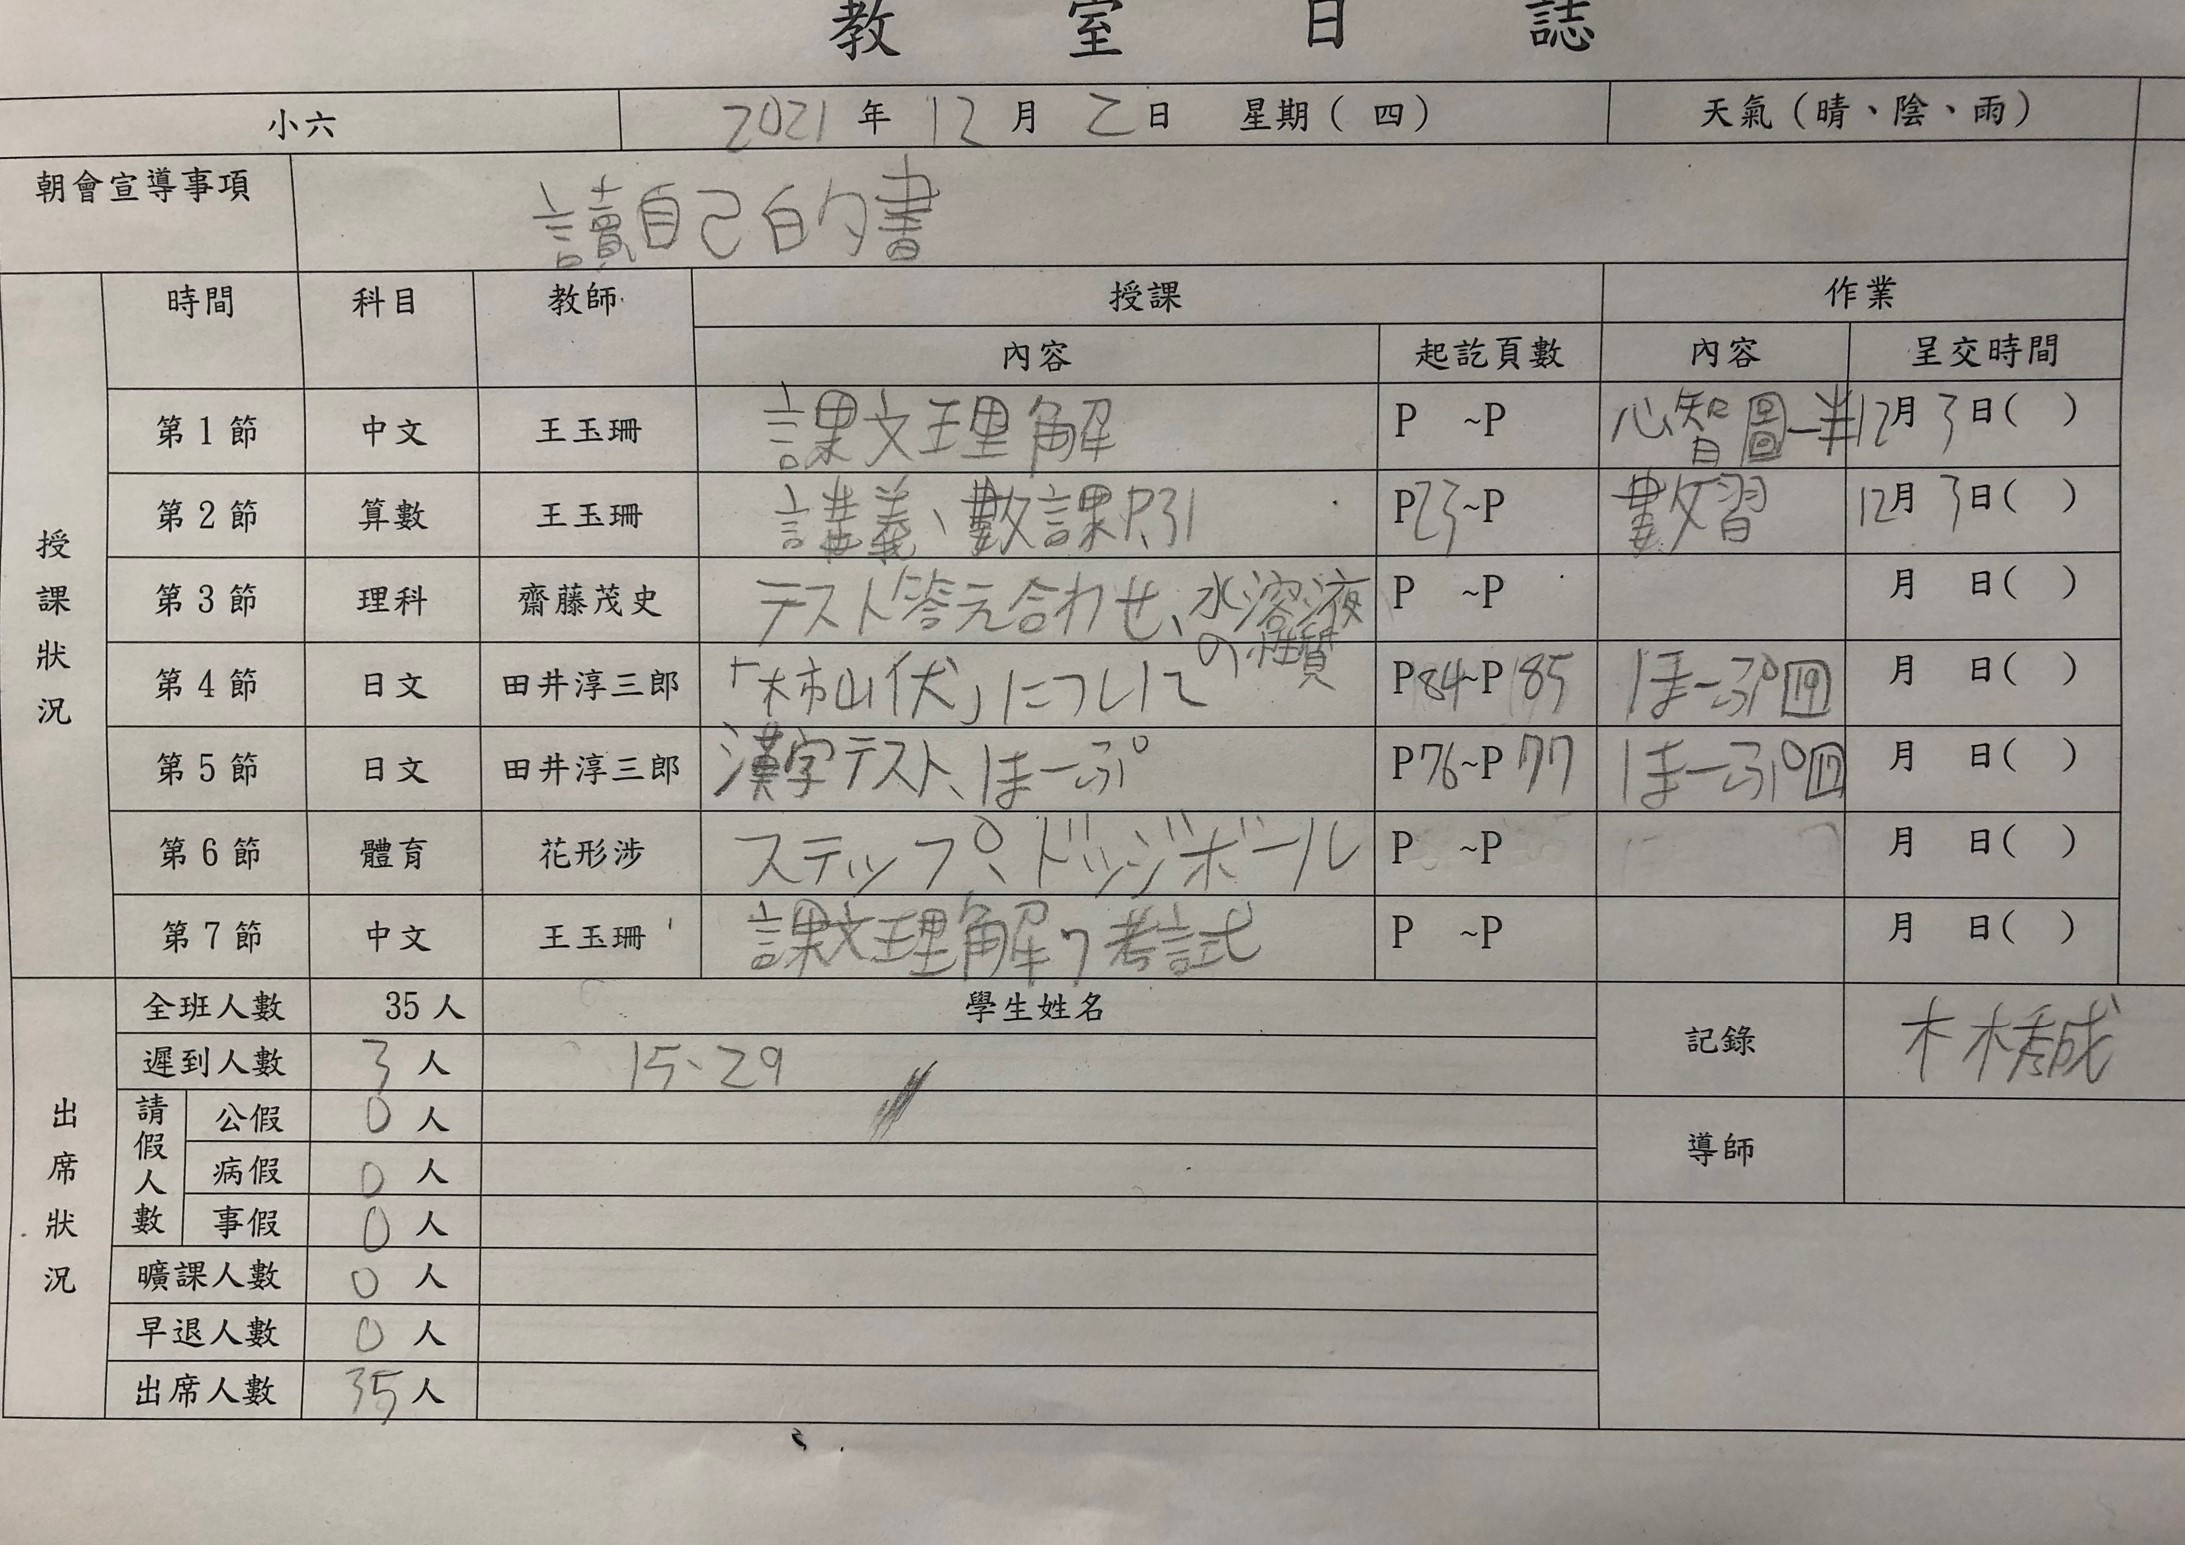 教室日誌
小六 2021年12月2日 星期(四) 天氣(晴、陰、雨)
朝會宣導事項 讀自己的書
授課狀況
時間 科目 教師 授課 作業
內容 起訖頁數 內容 呈交時間
第1節 中文 王玉珊 課文理解 P ~P 心智圖一半 12月3日( )
第2節 算數 王玉珊 講義、數課P.31 P23~P 數習 12月3日( )
第3節 理科 齋藤茂史 テスト答え合わせ、水溶液の性質 P ~P 月 日( )
第4節 日文 田井淳三郎 「柿山伏」について P184~P185 ほーぷ19 月 日( )
第5節 日文 田井淳三郎 漢字テスト、ほーぷ P76~P77 ほーぷ17 月 日( )
第6節 體育 花形涉 ステップ、ドッジボール P ~P 月 日( )
第7節 中文 王玉珊 課文理解、考試 P ~P 月 日( )
出席狀況
全班人數 35人 學生姓名
遲到人數 3人 15、29
請假人數
公假 0人
病假 0人
事假 0人
曠課人數 0人
早退人數 0人
出席人數 35人
記錄
導師